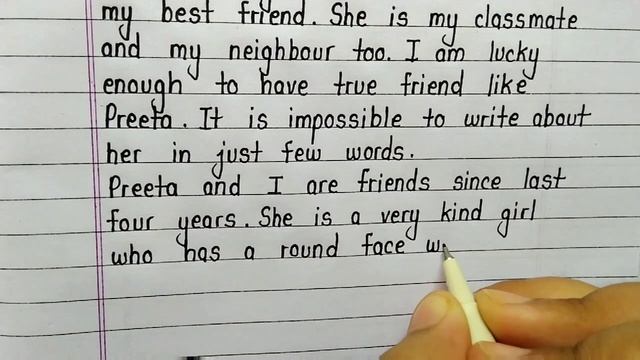 my best friend. She is my classmate
and my neighbour too. I am lucky
enough to have true friend like
Preeta. It is impossible to write about
her in just few words.
Preeta and I are friends since last
four years. She is a very kind girl
who has a round face w